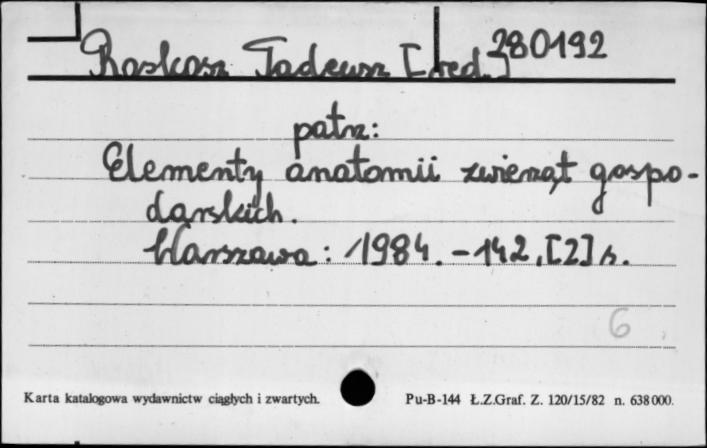 Roskosz Tadeusz [red.] 280192
patrz:
Elementy anatomii zwierząt gospo-
darskich.
Warszawa: 1984. - 142, [2] s.
6
Karta katalogowa wydawnictw ciągłych i zwartych. Pu-B-144 Ł.Z.Graf. Z. 120/15/82 n. 638000.